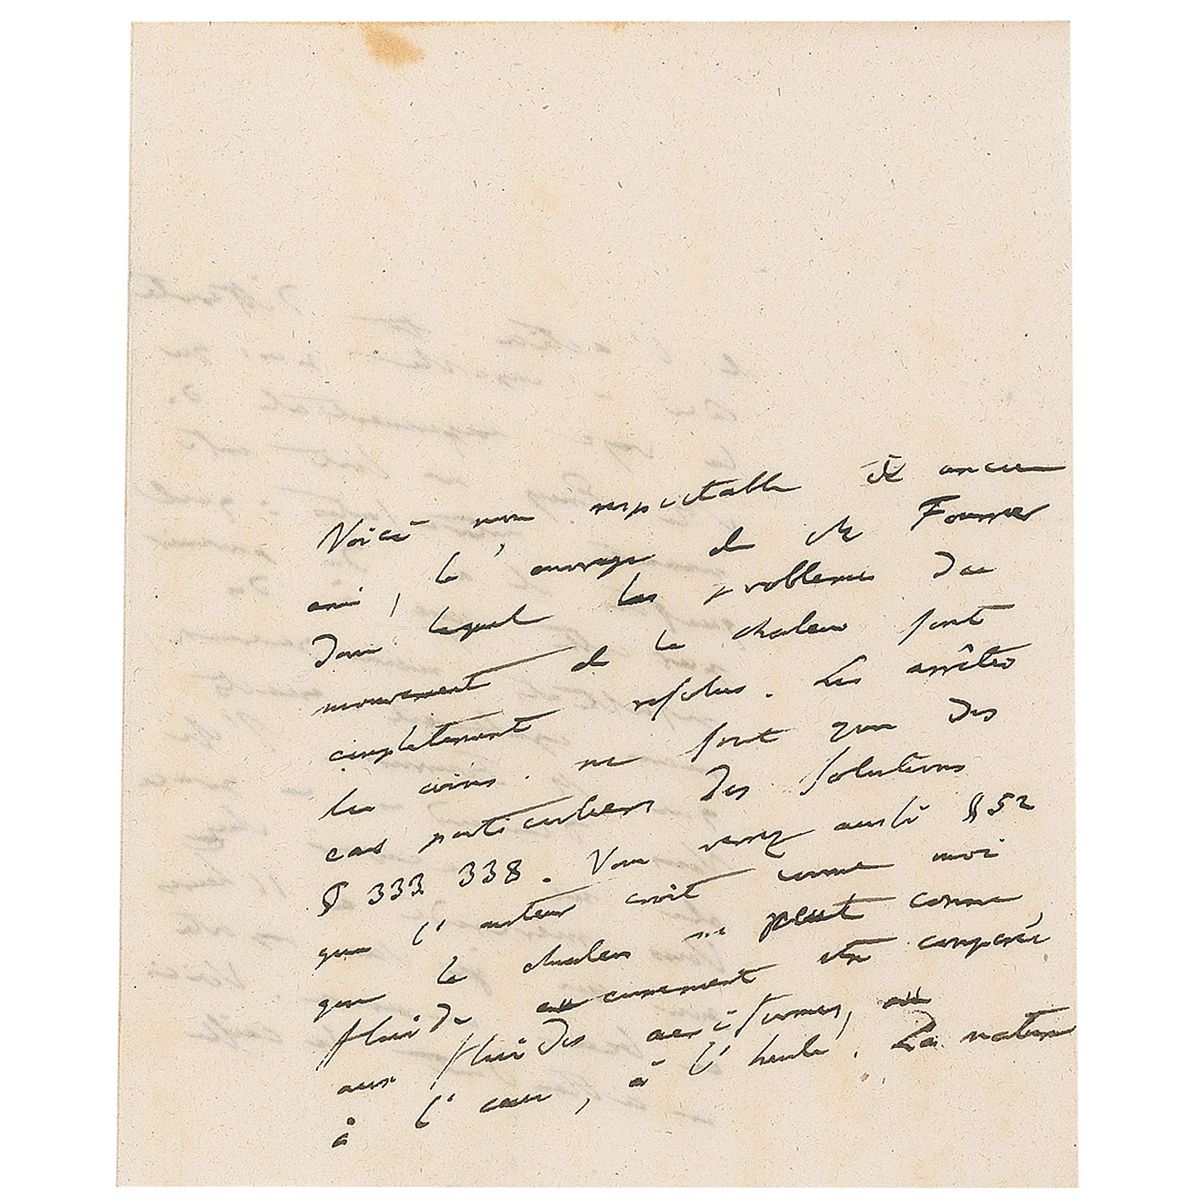 Voici mon respectable et ancien
ami, l'ouvrage de Mr Fourrier
dans lequel les problemes du
mouvement de la chaleur sont
completement resolus. Les arrêtes
les coins. ne sont que des
cas particuliers des solutions
§ 333 338. Vous verrez aussi § 52
que l'auteur croit comme moi
que la chaleur ne peut comme
fluide aucunement etre comparée
aux fluides aeriformes,
à l'eau, à l'huile. La nature